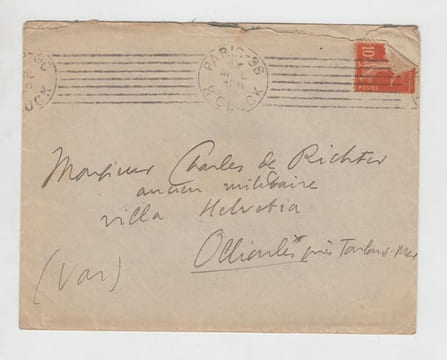 PARIS-96
R. GLUCK
10
POSTES
Monsieur Charles de Richter
ancien militaire
villa Helvetia
Ollioules près Toulon-Mer
(Var)